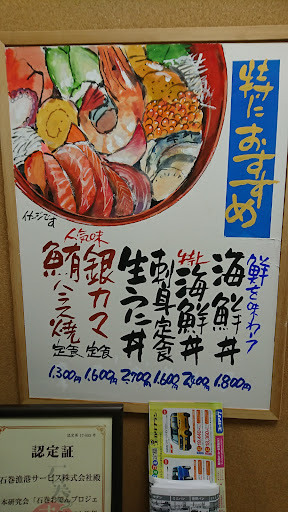 特におすすめ
イメージです
鮮を味わう
海鮮丼 1.800円
特上海鮮丼 2.400円
刺身定食 1.600円
生うに丼 2.700円
人気味
銀カマ定食 1.600円
鮪ハラス焼定食 1.300円
認定証
石巻漁港サービス株式会社殿
本研究会「石巻おでんプロジェ